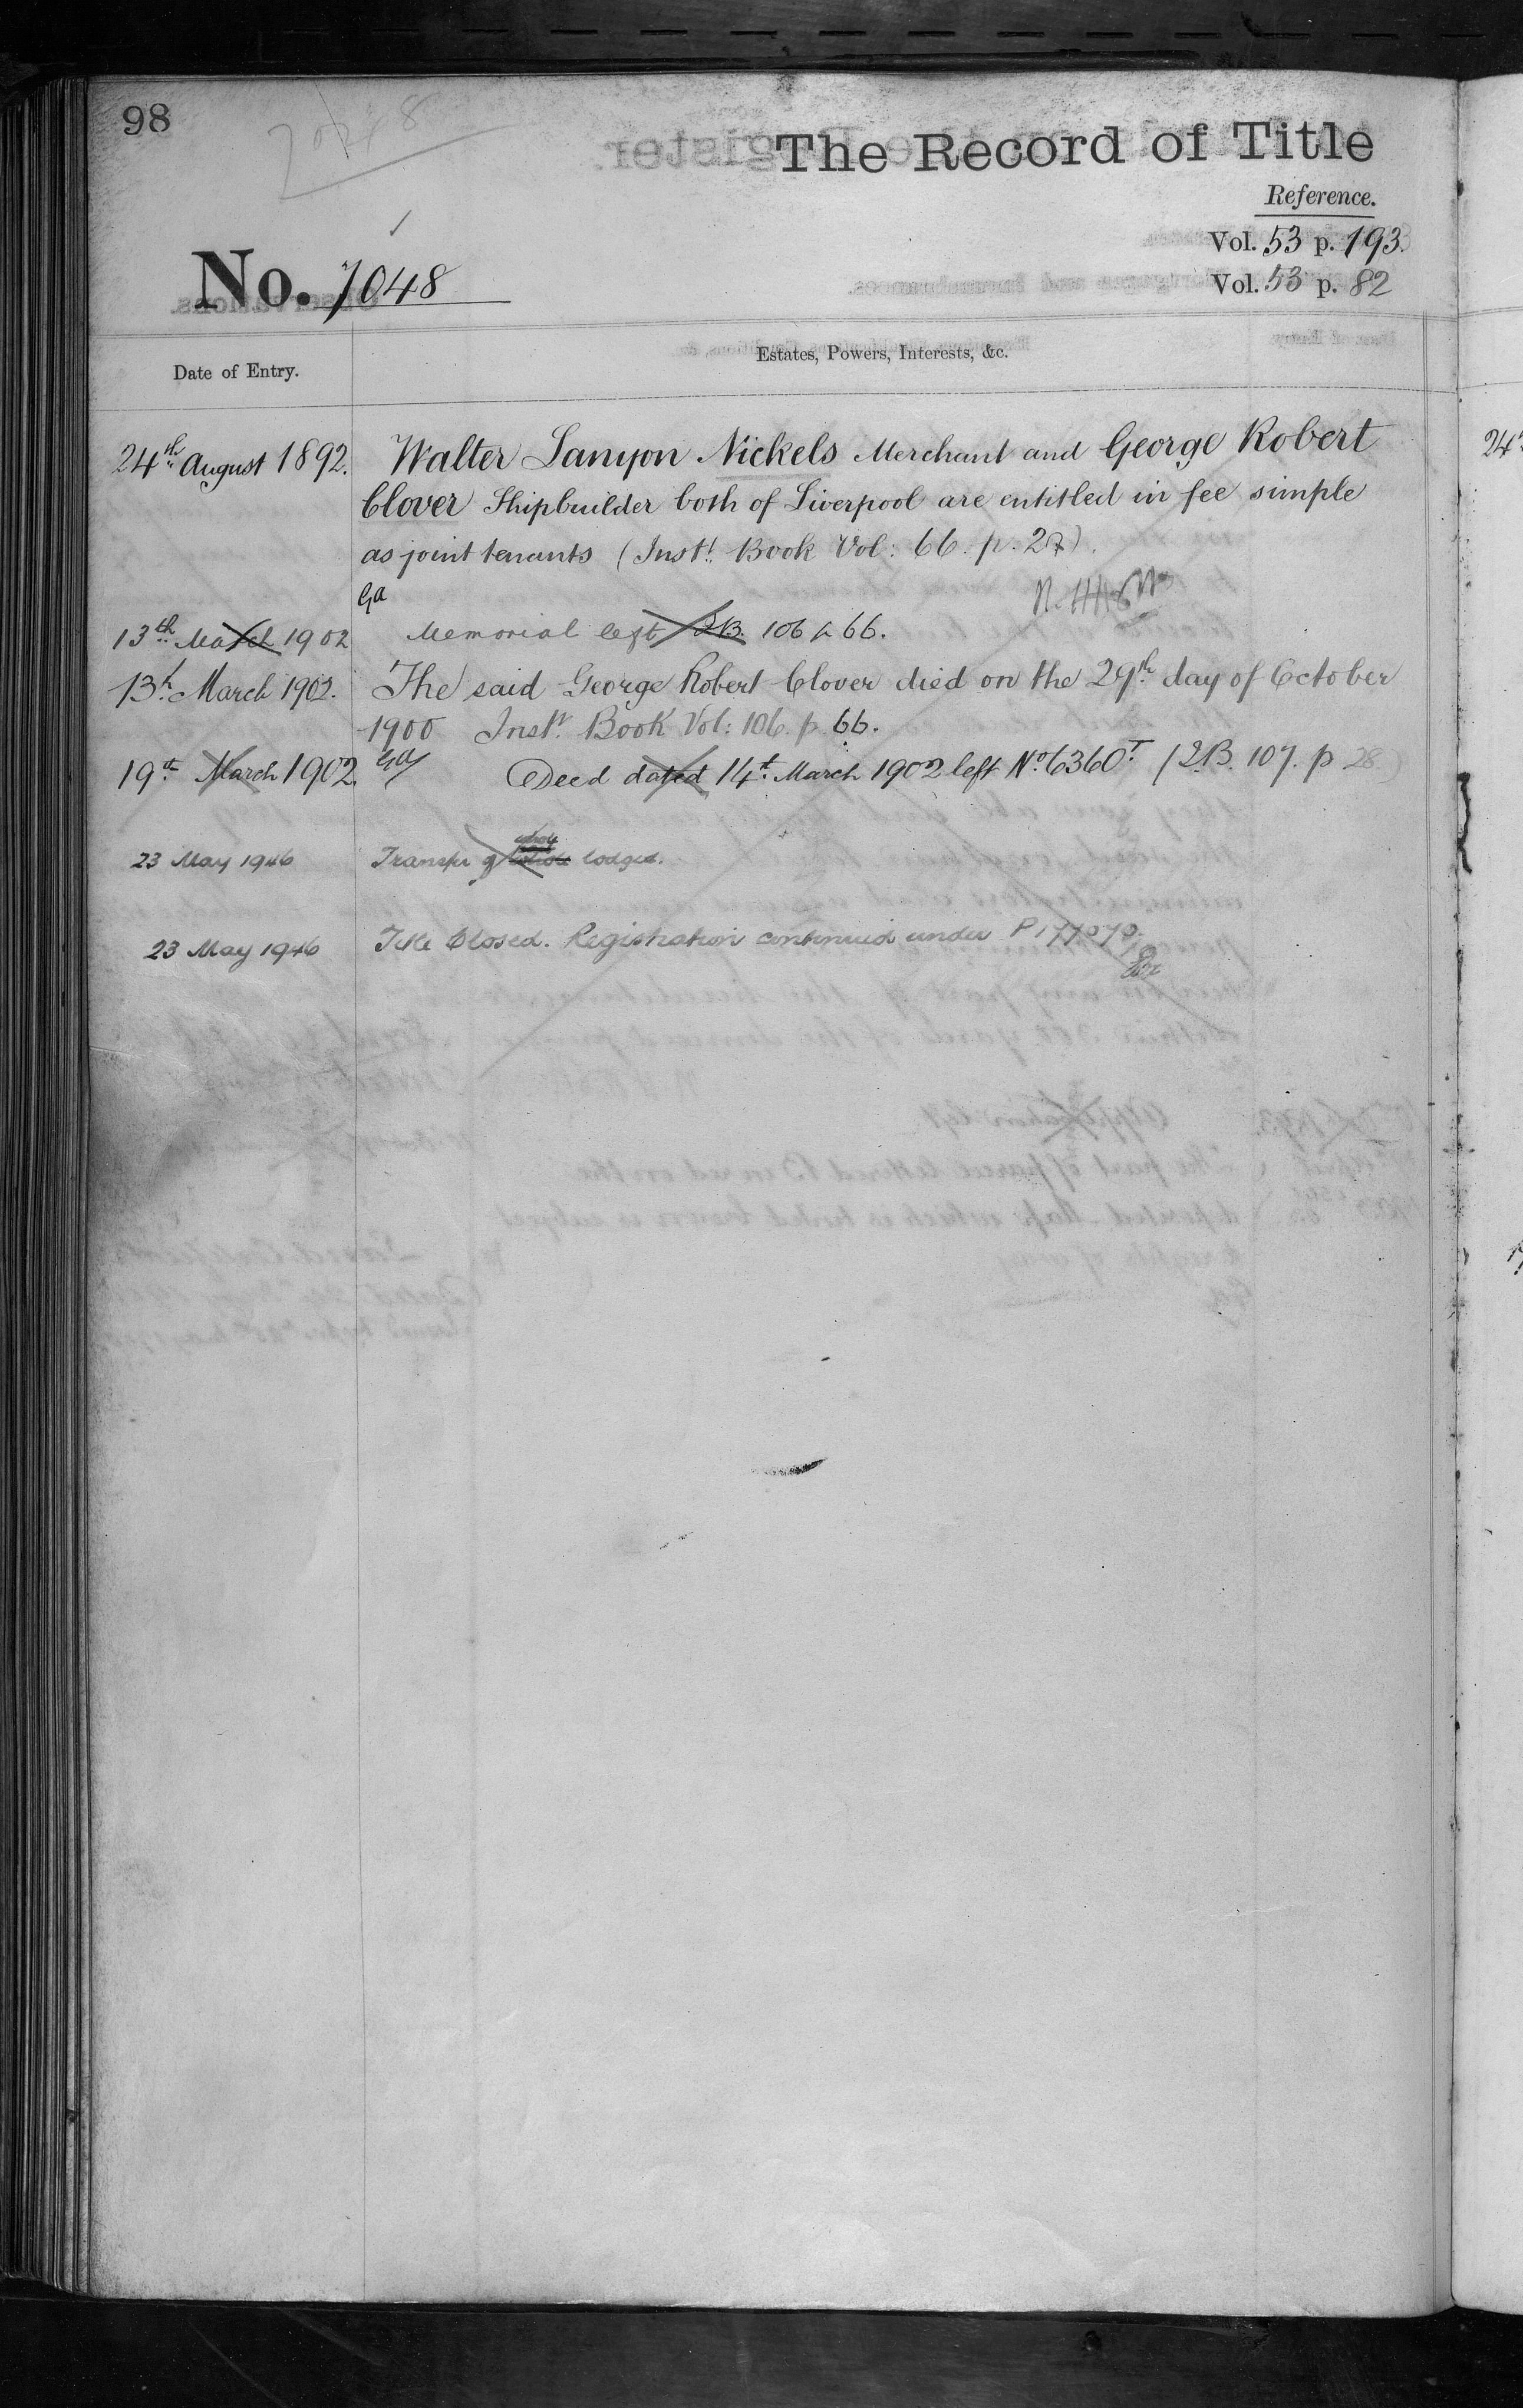 98
7048
The Record of Title
Reference.
Vol. 53 p. 193.
No. 7048
Vol. 53 p. 82
Date of Entry.
Estates, Powers, Interests, &c.
24th August 1892. Walter Lanyon Nickels Merchant and George Robert
Clover Shipbuilder both of Liverpool are entitled in fee simple
as joint tenants (Inst. Book Vol: 66. p. 27).
Ga
13th March 1902 Memorial left I.B. 106 p 66.
13th March 1902. The said George Robert Clover died on the 29th day of October
1900 Inst. Book Vol: 106. p. 66.
Ga
19th March 1902. Deed dated 14th March 1902 left No. 6360T (I.B. 107. p 28)
whole
23 May 1946 Transfer of whole lodged.
23 May 1946 Title Closed. Registration continued under P177070.
24th